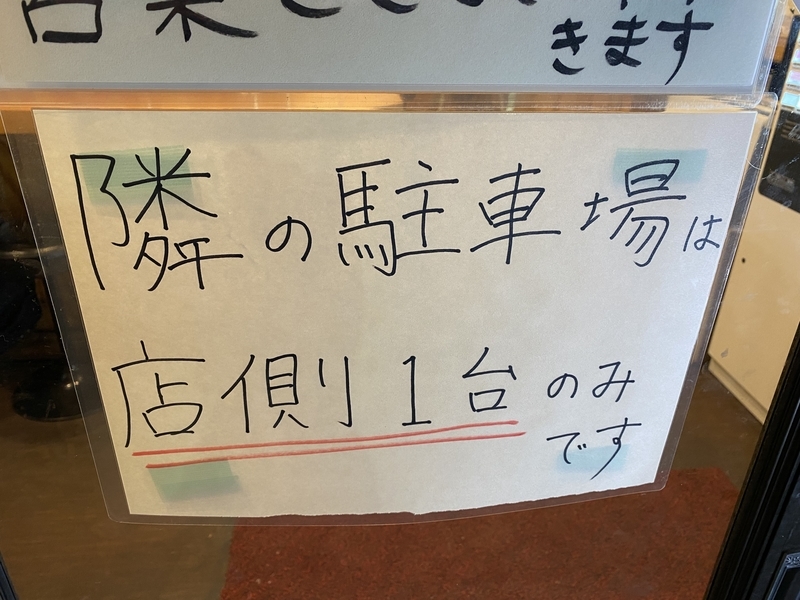 きます
隣の駐車場は
店側1台のみ
です